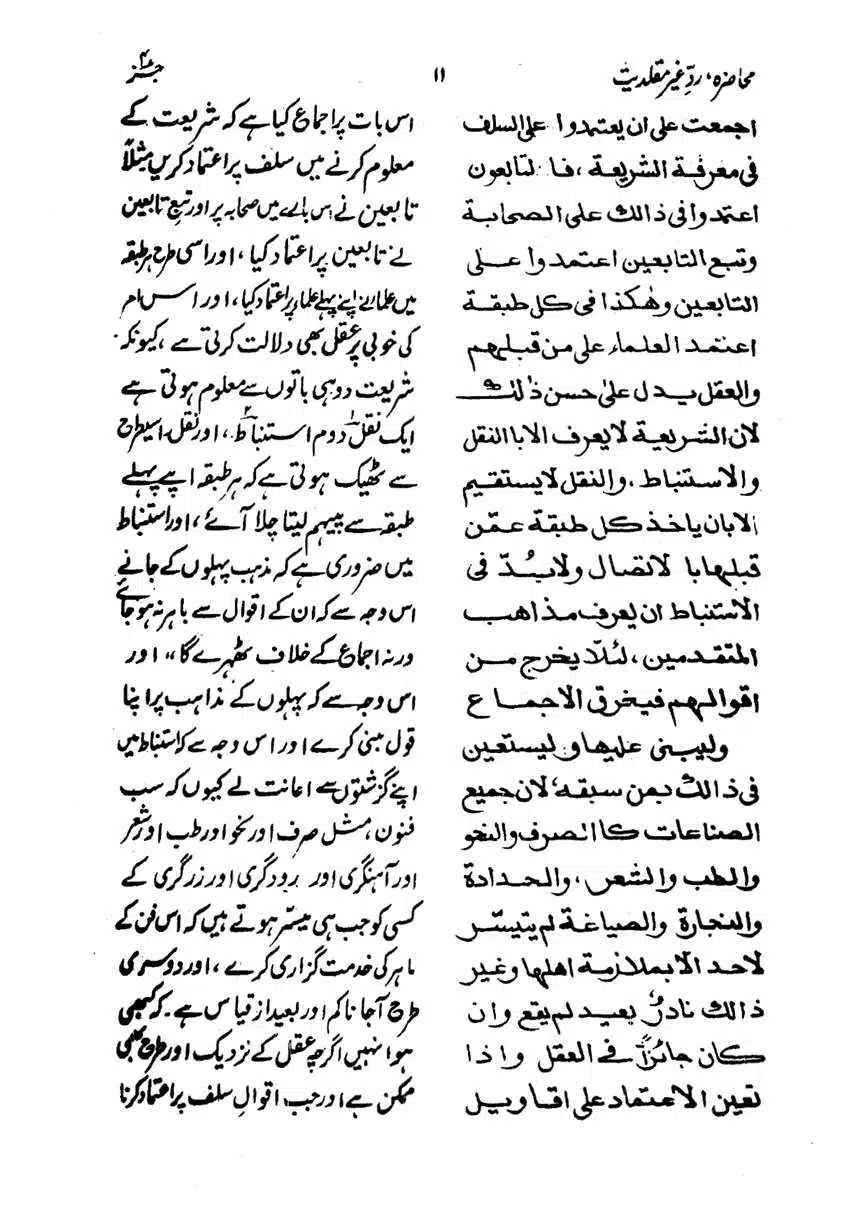 محاضرہ، ردِّ غیر مقلدیت
۱۱
جز ۴
اجمعت علی ان یعتمدوا علی السلف
فی معرفۃ الشریعۃ، فا لتابعون
اعتمدوا فی ذالک علی الصحابۃ
وتبع التابعین اعتمدوا علی
التابعین وھٰکذا فی کل طبقۃ
اعتمد العلماء علی من قبلہم
والعقل یدل علیٰ حسن ذٰلک
لان الشریعۃ لا یعرف الا با النقل
والاستنباط، والنقل لا یستقیم
الا بان یاخذ کل طبقۃ عمّن
قبلہا با لاتصال ولا بُدّ فی
الاستنباط ان یعرف مذاھب
المتقدمین، لئلّا یخرج من
اقوالہم فیخرق الاجماع
ولیبنی علیہا و لیستعین
فی ذالک بمن سبقہ، لان جمیع
الصناعات کا الصرف والنحو
والطب والشعر، والحدادۃ
والنجارۃ والصیاغۃ لم یتیسّر
لاحد الا بملازمۃ اھلہا وغیر
ذالک نادرٌ بعید لم یقع وان
کان جائزاً فی العقل واذا
تعین الاعتماد علی اقاویل
اس بات پر اجماع کیا ہے کہ شریعت کے
معلوم کرنے میں سلف پر اعتماد کریں مثلاً
تابعین نے اس بارے میں صحابہ پر اور تبع تابعین
نے تابعین پر اعتماد کیا، اور اسی طرح ہر طبقہ
میں علما نے اپنے پہلے علما پر اعتماد کیا، اور اس امر
کی خوبی پر عقل بھی دلالت کرتی ہے، کیونکہ
شریعت دو ہی باتوں سے معلوم ہوتی ہے
ایک نقل۱ دوم استنباط۲، اور نقل اسیطرح
سے ٹھیک ہوتی ہے کہ ہر طبقہ اپنے پہلے
طبقہ سے پیہم لیتا چلا آئے، اور استنباط
میں ضروری ہے کہ مذہب پہلوں کے جانے
اس وجہ سے کہ ان کے اقوال سے باہر نہ ہو جائے
ورنہ اجماع کے خلاف ٹھہرے گا،، اور
اس وجہ سے کہ پہلوں کے مذاہب پر اپنا
قول مبنی کرے اور اس وجہ سے کہ استنباط میں
اپنے گزشتوں سے اعانت لے کیوں کہ سب
فنون، مثل صرف اور نحو اور طب اور شعر
اور آہنگری اور برودگری اور زرگری کے
کسی کو جب ہی میسّر ہوتے ہیں کہ اس فن کے
ماہر کی خدمت گزاری کرے، اور دوسری
طرح آجانا کم اور بعید از قیاس ہے۔ کہ کبھی
ہوا نہیں اگرچہ عقل کے نزدیک اور طرح بھی
ممکن ہے اور جب اقوالِ سلف پر اعتماد کرنا